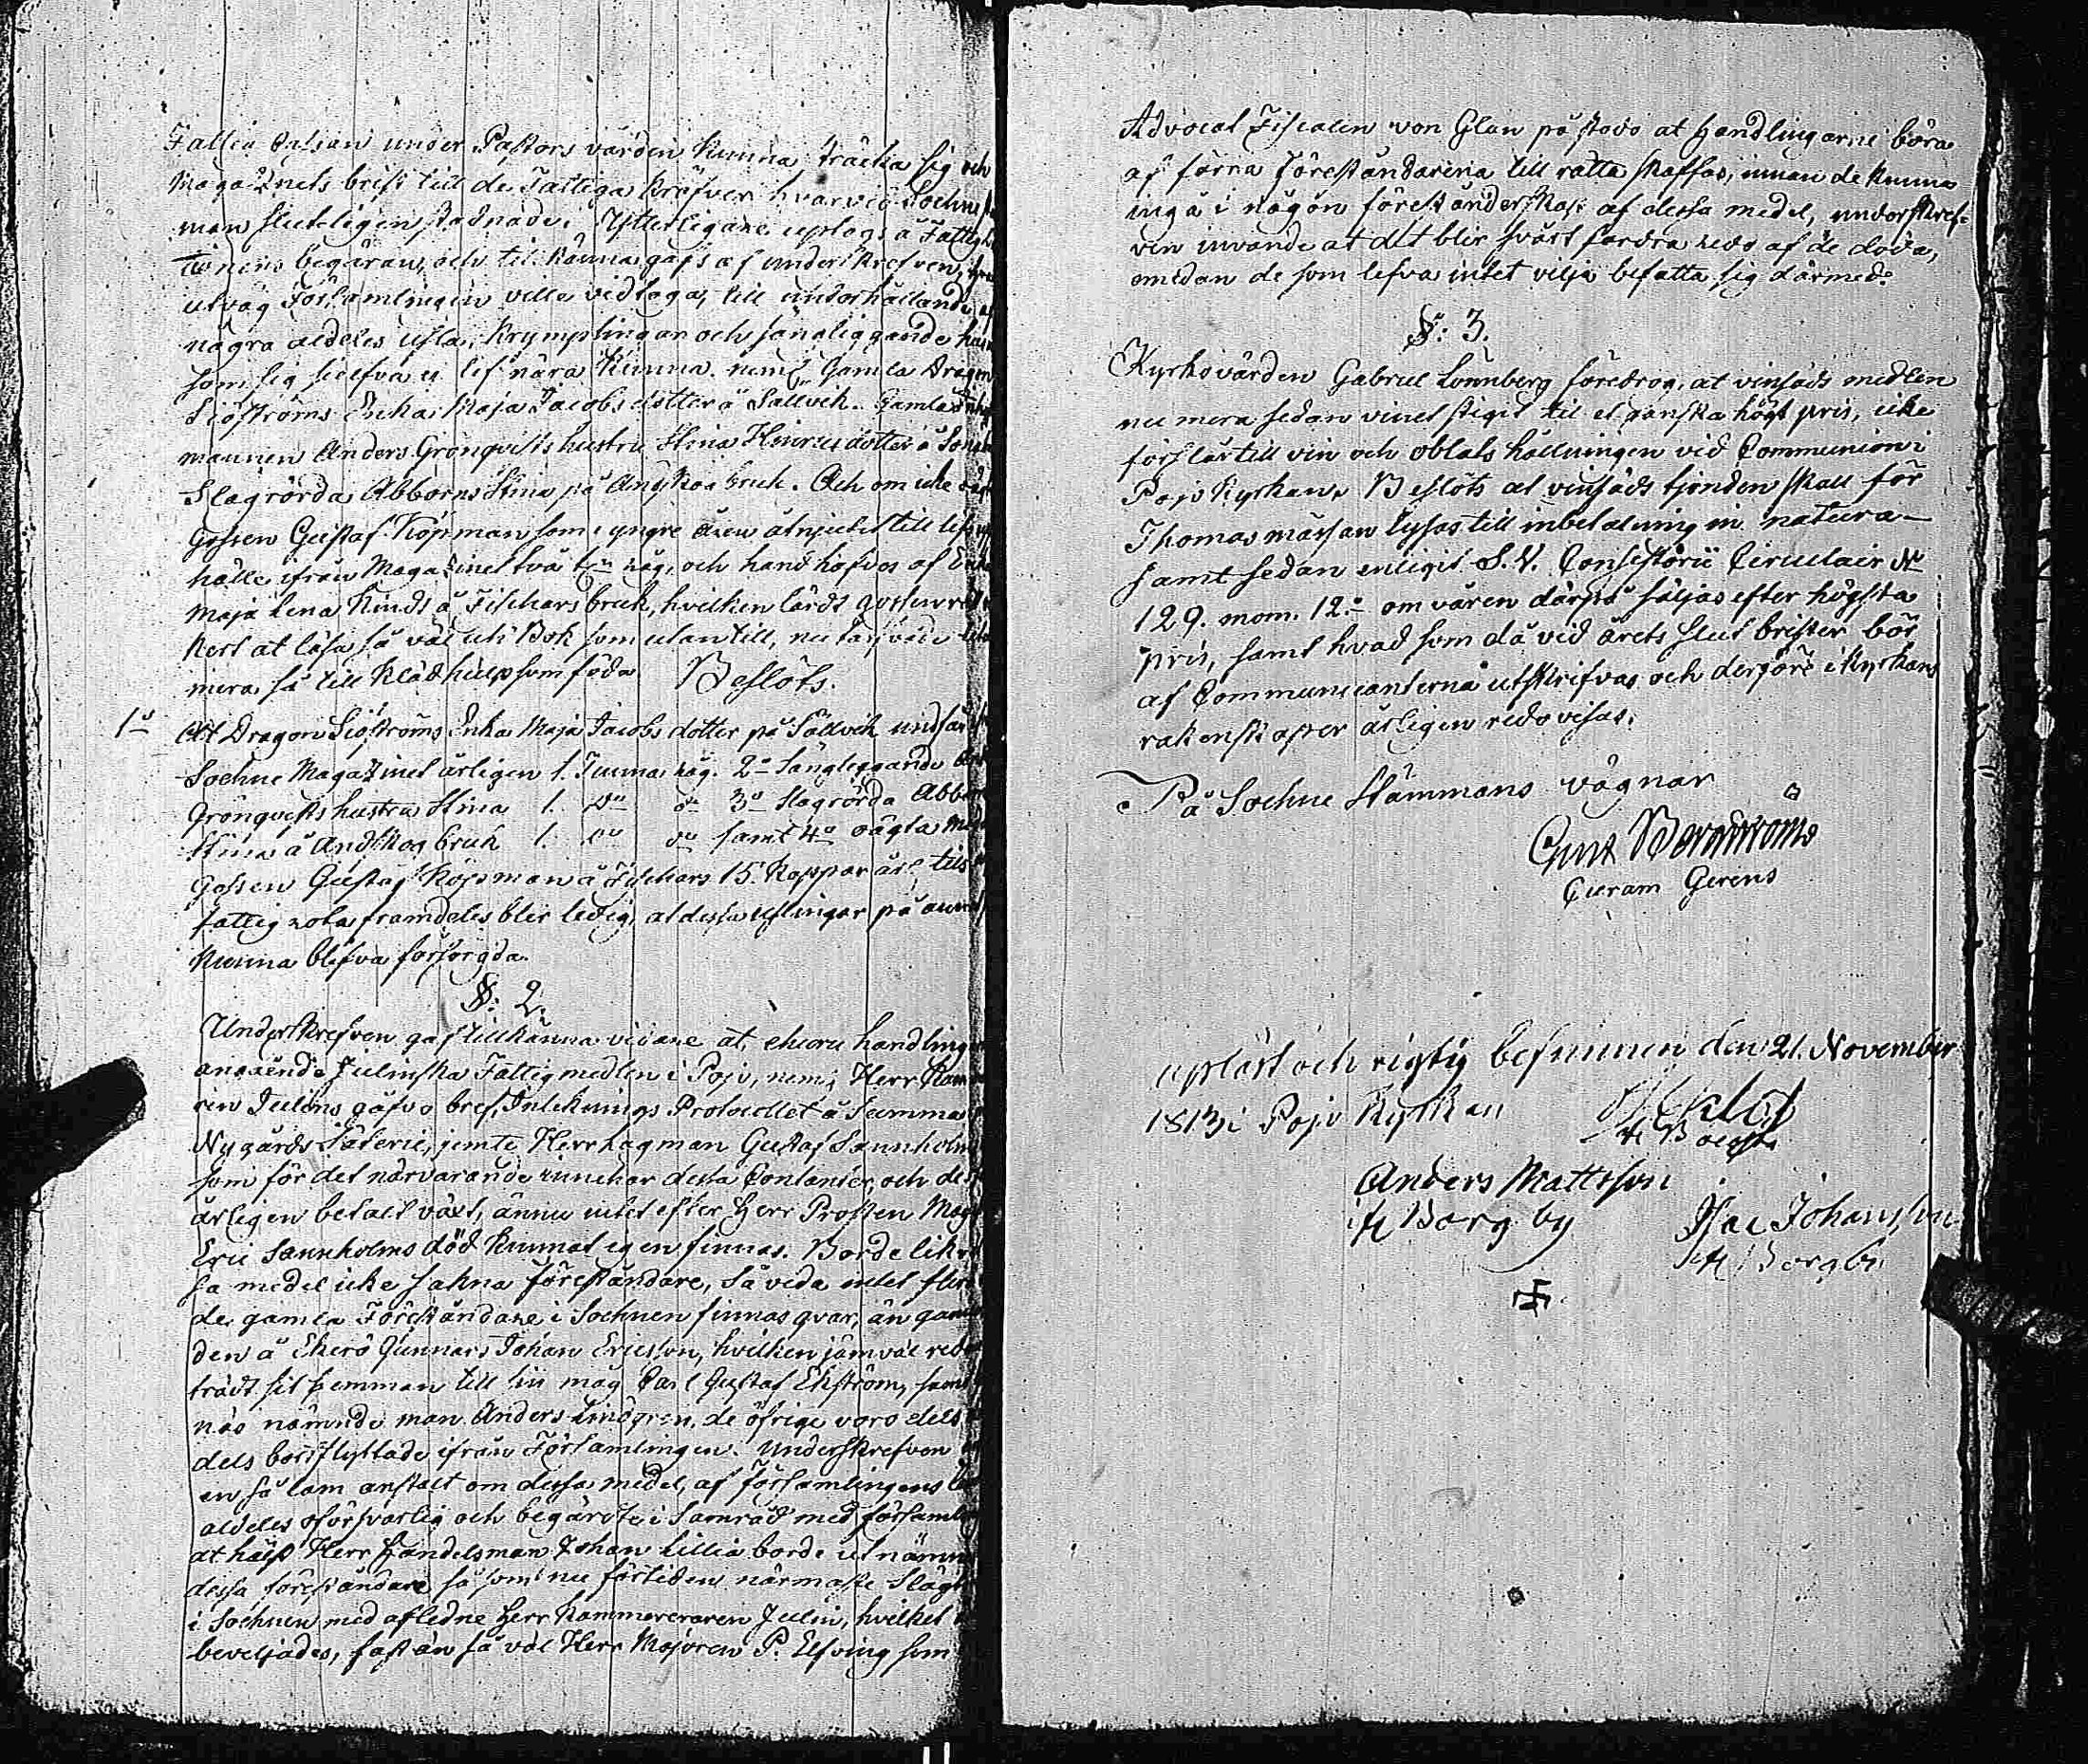 Fattig Cassan under Pastors vården kunna sträcka sig och
Magazinets brist till de Fattiga kräfver hvarvid Sochne
man sluteligen stadnade. Ytterligare uptogs å Fattig
tionens begäran, och til känna gafs af underskrefven,
utväg Församlingen ville vedtaga, till underhållande af
några aldeles usla, Krymplingar och sängliggande
som sig sielfva ej lifnära kunna. neml. Gamla Dragon
Siöströms Enka Maja Jacobs dotter å Sällvik. Gamla
mannen Anders Grönqvists hustru Stina Hinricsdotter å
Slagrörda Abborns Stina på Anskog bruk. Och om icke
Gossen Gustaf Köpman som i yngre åren åtniutit till lifs
hälle ifrån Magazinet två tnr råg, och handhafvos af Enka
Maja Lena Kinds å Fiskars bruk, hvilken lärdt gossen
kert at läsa så väl uti Bok som utan till, nu tarfvade
mera så till klädhielp som föda Beslöts.
1o At Dragon Siöströms Enka Maja Jacobs dotter på Sällvik undfår
Sochne Magazinet årligen 1. Tunna råg. 2o Sängliggande
Grönqvists hustru Stina 1. do do 3o Slagrörda Abborns
Stina å Andskog bruk 1. do do samt 4o vågla
Gossen Gustaf Köpman å Fiskars 15. Kappar årl. tils
fattig rota framdeles blir ledig, at dessa uslingar på
kunna blifva försörgda.
§: 2.
Underskrefven gaf tillkänna vidare at, ehuru handlingar
angående Julinska Fattigmedlen i Pojo, neml. Herr Kam
rer Julins gåfvo bref, Inteknings Protocollet å Summa
Nygårds Säterie, jemte Herr Lagman Gustaf Sannholm
som för det närvarande innehar dessa Contanter, och de
årligen betalt växt, ännu intet efter Herr Prosten Mag
Eric Sannholms död kunnat igen finnas. Borde lik
sa medel icke sakna föreståndare, så vida intet flere
de gamla Föreståndare i Sochnen finnas qvar, än
den å Ekerö Gunnars Johan Ericsson, hvilken jämväl
trädt sit hemman till sin måg Carl Gustaf Ekström, samt
näs nämnde man Anders Lindgren, de öfrige voro dels
dels bortflyttade ifrån Församlingen. Underskrefven
en så lam anstalt om dessa medel, af Församlingens
aldeles oförsvarlig och begärdte i Samråd med församling
at hälst Herr Handelsman Johan Lillia borde utnämnas
dessa föreståndare så som nu förtiden närmaste Slägt
i Sochnen med afledne Herr Kammereraren Julin, hvilket
beveljades, fast än så väl Herr Majoren P. Elfving som
Advocat Fiscalen von Glan påstodo at handlingarne böra
af förra Föreståndarena till rätta skaffas, innan de kunna
ingå i någon föreståndarskap af dessa medel, underskref-
ven invände at det blir svårt fordra redo af de döda,
emedan de som lefva intet vilja befatta sig därmed.
§: 3.
Kyrkovärden Gabriel Lönnberg föredrog, at vinsäds medlen
nu mera sedan vinet stigit til et ganska högt pris, icke
förslår till vin och oblats hållningen vid Communion i
Pojo Kyrkan. Beslöts at vinsäds tjonden skall för
Thomas mässan lysas till inbetalning in natura
samt sedan enligit S. V. Consistorii Circulair No
129. mom. 12o om våren därpå säljas efter högsta
pris, samt hvad som då vid årets slut brister bör
af Communicanterna utskrifvas och derföre i Kyrkans
räkenskaper årligen redovisas.
På Sochne Stämmans vägnar
Curam Gerens
upläst och rigtig befunnen den 21. November
1813 i Pojo Kyrkan
Anders Mattsson
ifr Borg by
Isac Johansson
ifr Borgby